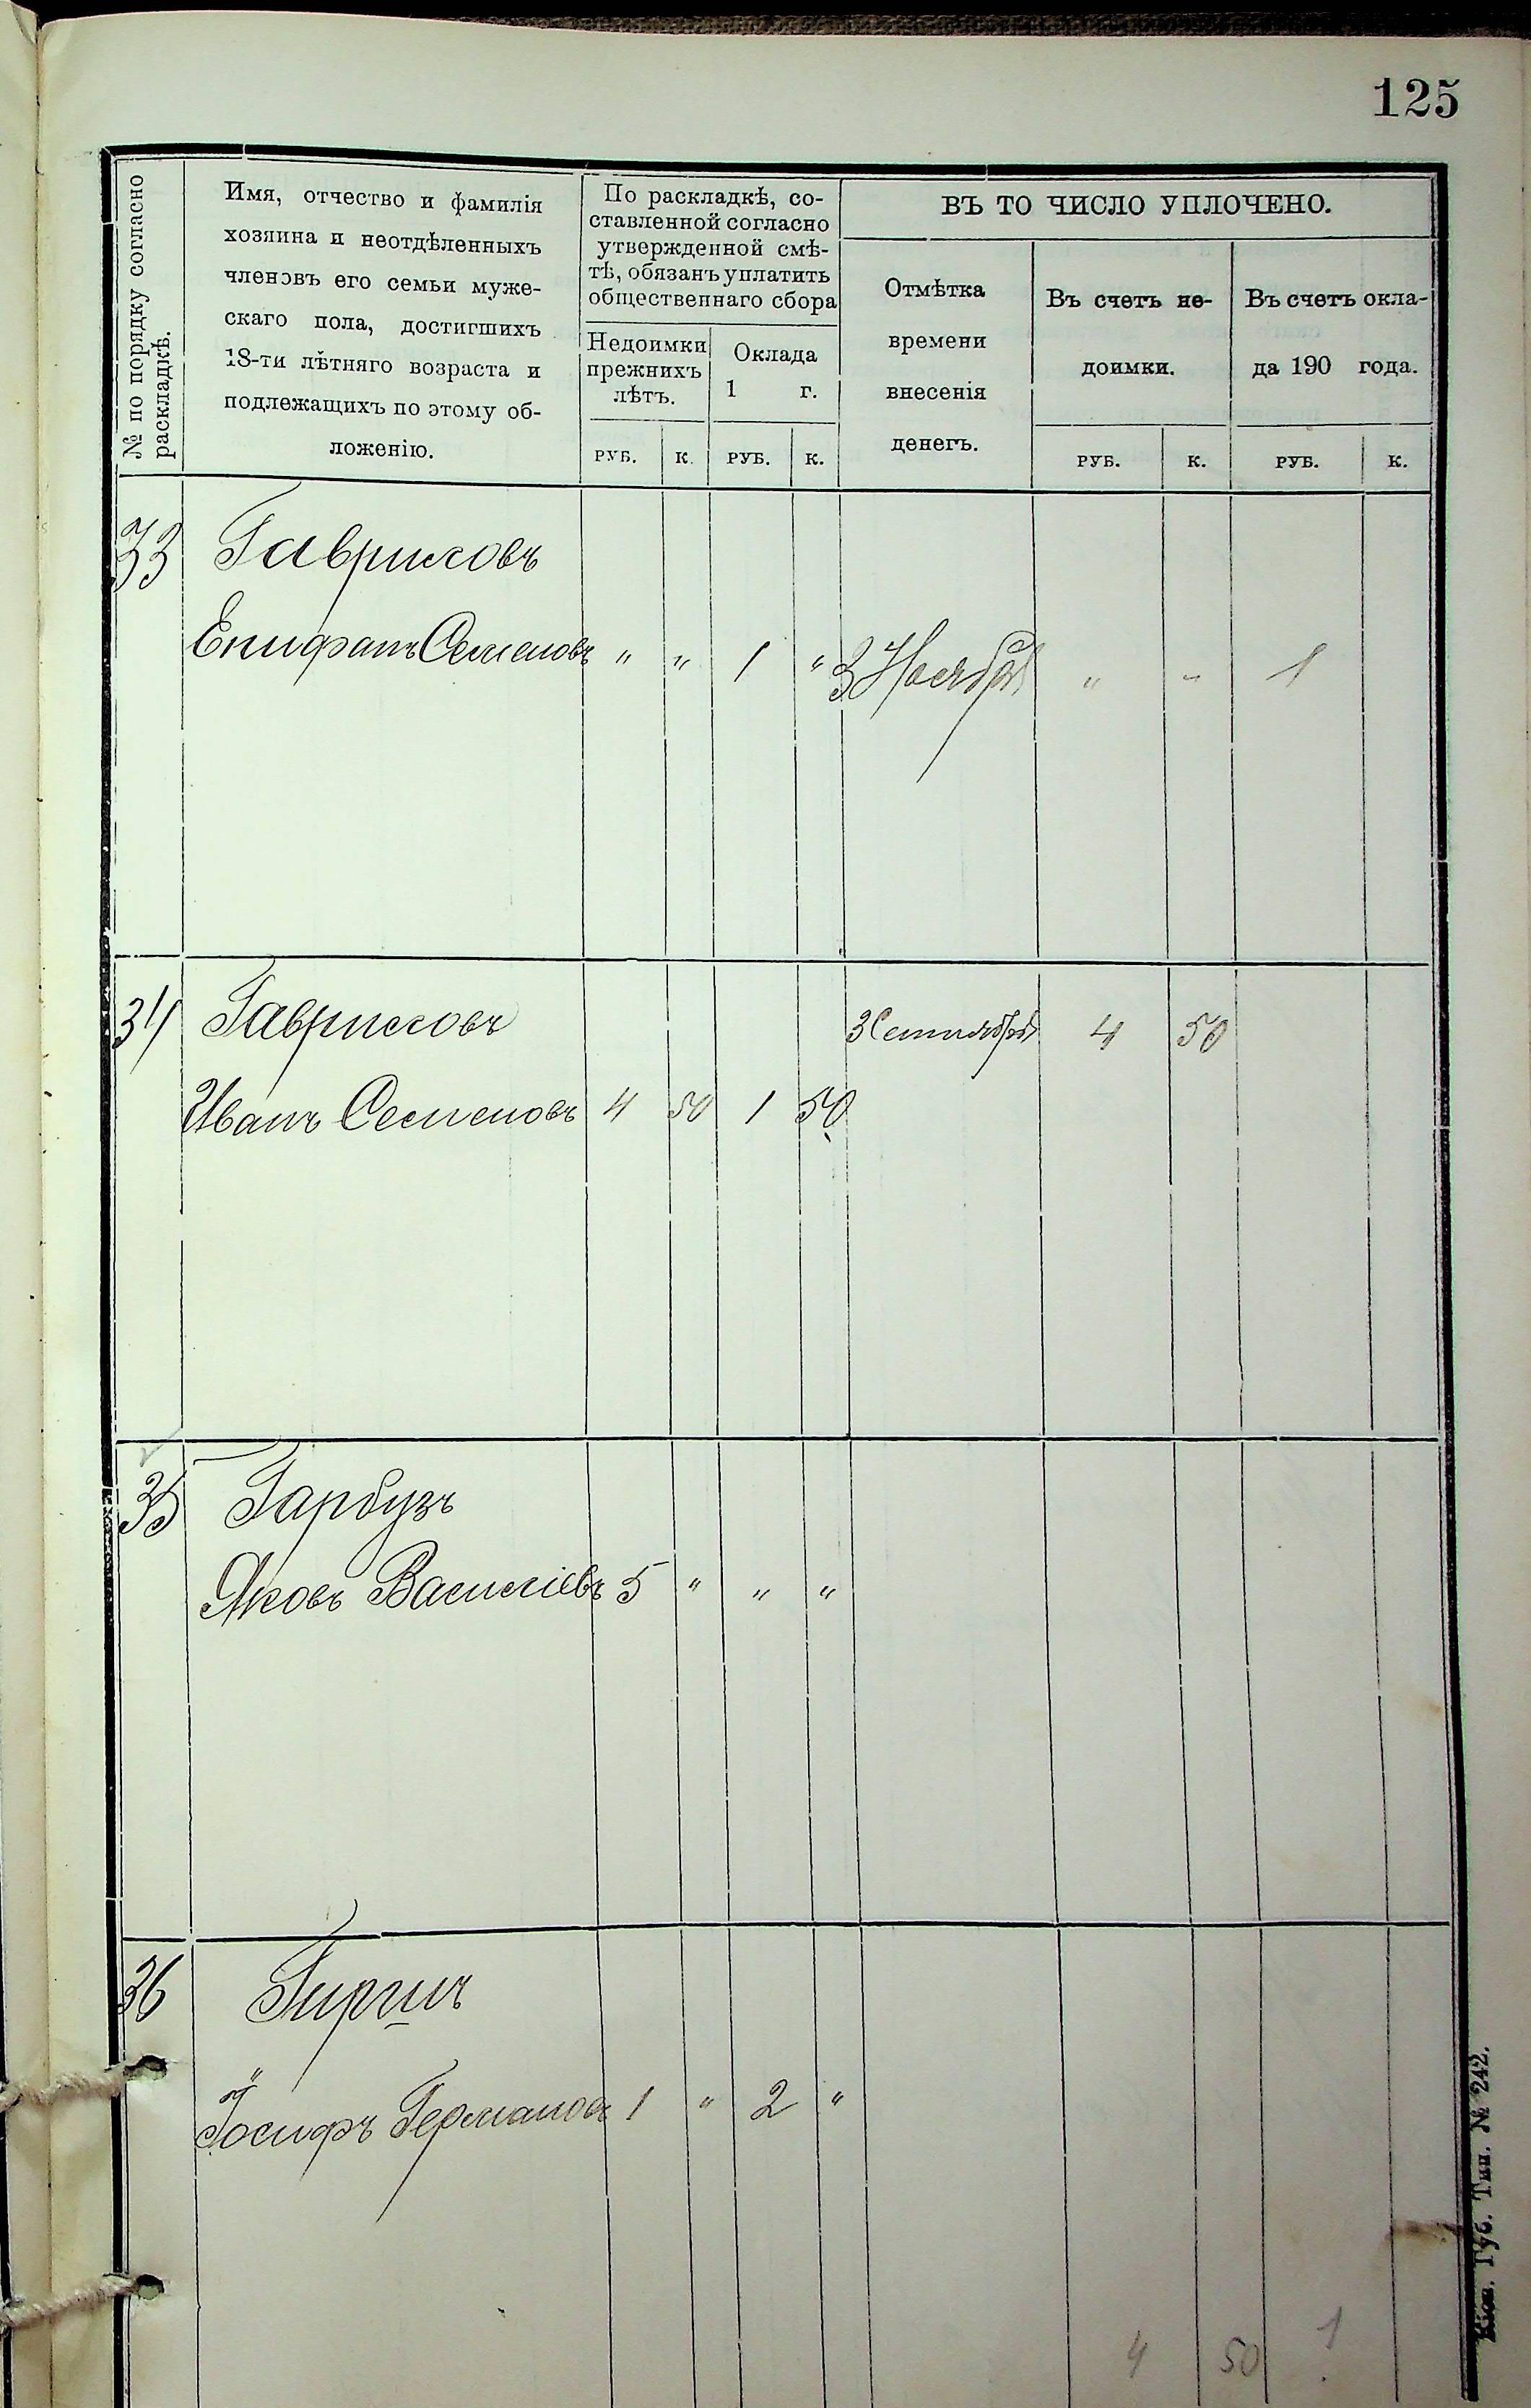 125
№ по порядку согласно
раскладкѣ.
Имя, отчество и фамилія
хозяина и неотдѣленныхъ
членовъ его семьи муже-
скаго пола, достигшихъ
18-ти лѣтняго возраста и
подлежащихъ по этому об-
ложенію.
По раскладкѣ, со-
ставленной согласно
утвержденной смѣ-
тѣ, обязанъ уплатить
общественнаго сбора
Недоимки
прежнихъ
лѣтъ.
Оклада
1 г.
ВЪ ТО ЧИСЛО УПЛОЧЕНО.
Отмѣтка
времени
внесенія
денегъ.
Въ счетъ не-
доимки.
Въ счетъ окла-
да 190 года.
РУБ. К. РУБ. К. РУБ. К. РУБ. К.
33 Гавриловъ
Епифанъ Семеновъ " " 1 " 3 Ноября " " 1
34 Гавриловъ 3 Сентября 4 50
Иванъ Семеновъ 4 50 1 50
35 Гарбузъ
Яковъ Василіевъ 5 " " "
36 Гиргинъ
Іосифъ Германовъ 1 " 2 "
4 50 1
Кіев. Губ. Тип. № 242.